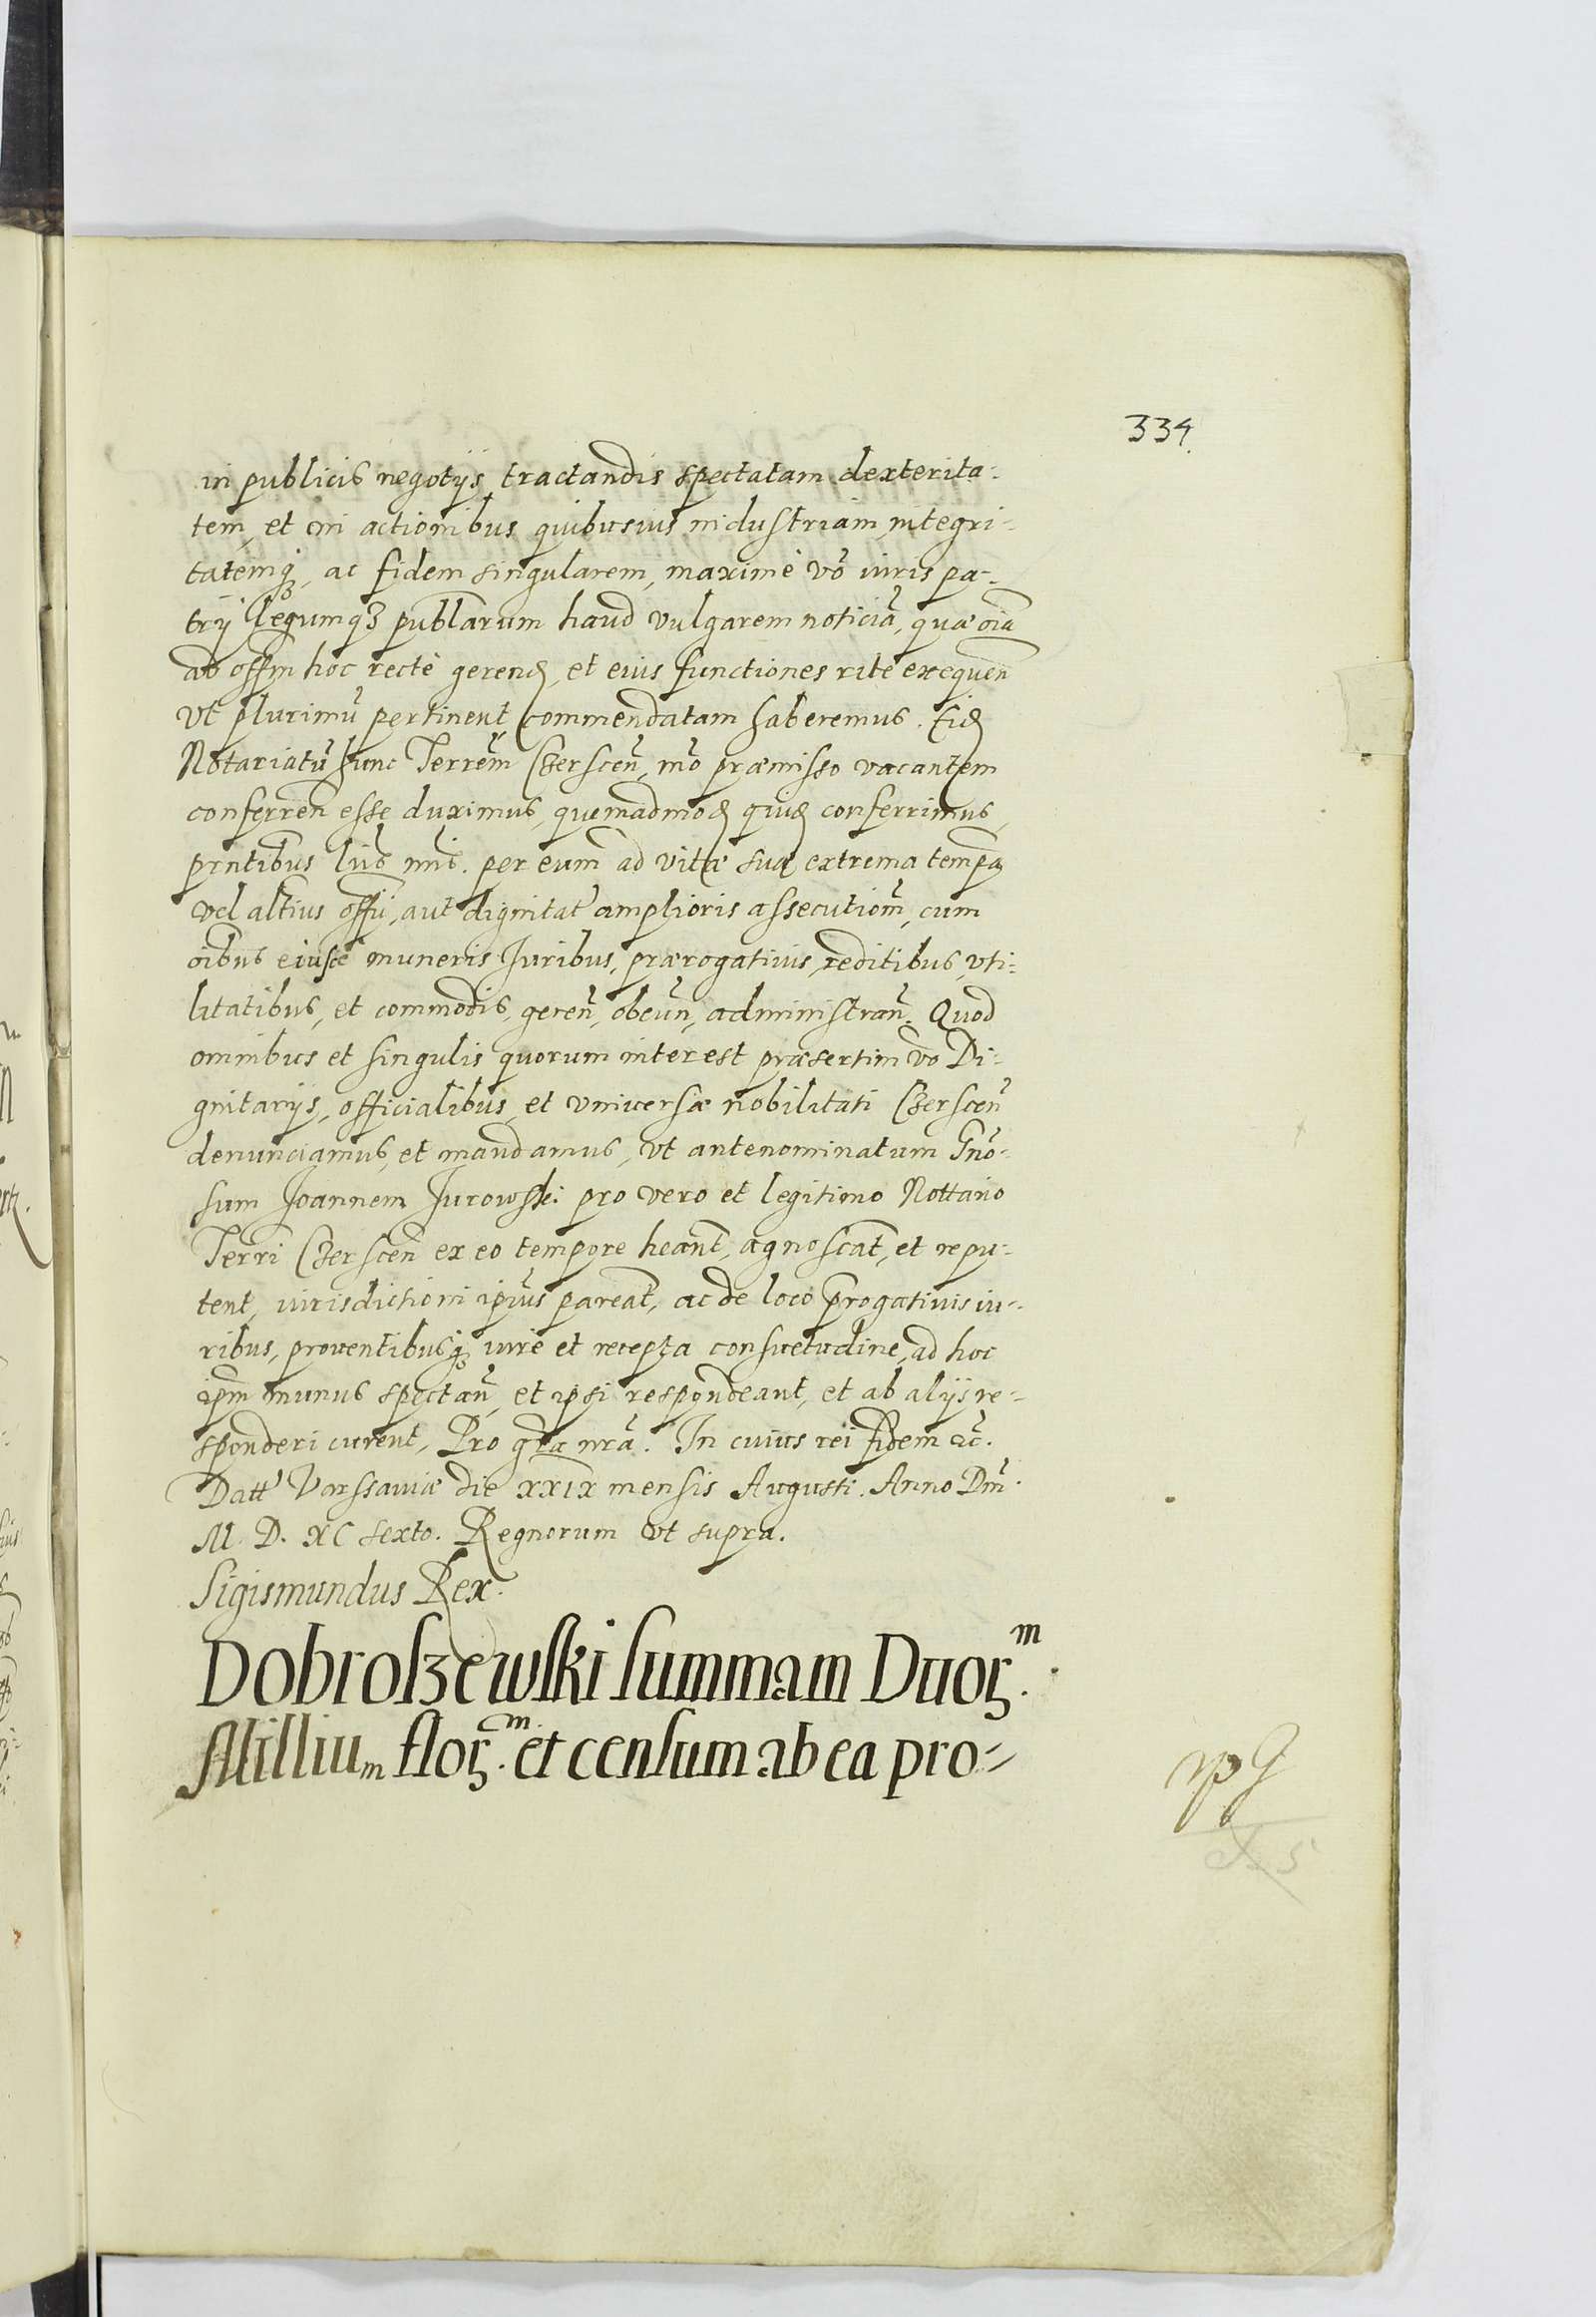 334.
in publicis negotijs tractandis spectatam dexterita-
tem, et in actionibus quibusuis industriam, integri-
tatemq3, ac fidem singularem, maximè võ iuris pa-
trij legumq3 publarum haud vulgarem noticiã, quæ oĩa
ad offm hoc rectè gerend, et eius functiones rite exequen̄
vt plurimũ pertinent, commendatam haberemus. Eid
Notariatũ hunc Terrẽm Czerscen̄, mõ præmisso vacantem
conferren̄ esse duximus, quemadmod quid conferrimus,
prntibus lris nris. per eum ad vitæ suæ extrema tempa
vel altius offij, aut dignitat amplioris assecutiom̄, cum
oĩbus eiusce muneris Juribus, prærogatiuis, reditibus, vti-
litatibus, et commodis, geren̄, obeun̄, administran̄. Quod
omnibus et singulis quorum interest præsertim võ Di-
gnitarijs, officialibus, et vniuersæ nobilitati Czerscen̄
denunciamus, et mandamus, vt antenominatum Gño-
sum Joannem Jurowski pro vero et legitimo Nottario
Terri Czerscen̄ ex eo tempore heant, agnoscãt, et repu-
tent, iurisdictioni ipius pareãt, ac de loco progatiuis iu-
ribus, prouentibusq3 iure et recepta consuetudine, ad hoc
ipm munus spectan̄, et ipsi respondeant, et ab alijs re-
sponderi curent, Pro gra nra. In cuius rei fidem &c.
Datt Varssauiæ die XXIX mensis Augusti. Anno Dm̃.
M. D. XC sexto. Regnorum vt supra.
Sigismundus Rex.
Dobroszewski summam Duor.m
Millium flor.m et censum ab ea pro-